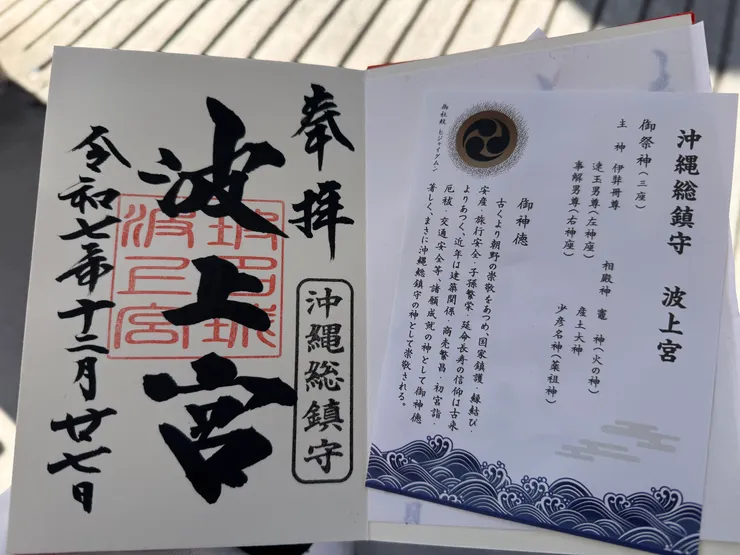 奉拝
沖縄総鎮守
波上宮
令和七年十二月廿七日
沖縄総鎮守 波上宮
御祭神(三座)
主神 伊弉冊尊
速玉男尊(左神座)
事解男尊(右神座)
相殿神 竈 神(火の神)
産土大神
少彦名神(薬祖神)
御神徳
古くより朝野の崇敬をあつめ、国家鎮護・縁結び・
安産・旅行安全・子孫繁栄・延命長寿の信仰は古来
よりあつく、近年は建築関係・商売繁昌・初宮詣・
厄祓・交通安全等、諸願成就の神として御神徳
著しく、まさに沖縄総鎮守の神として崇敬される。
御社紋 ヒジャイグムン